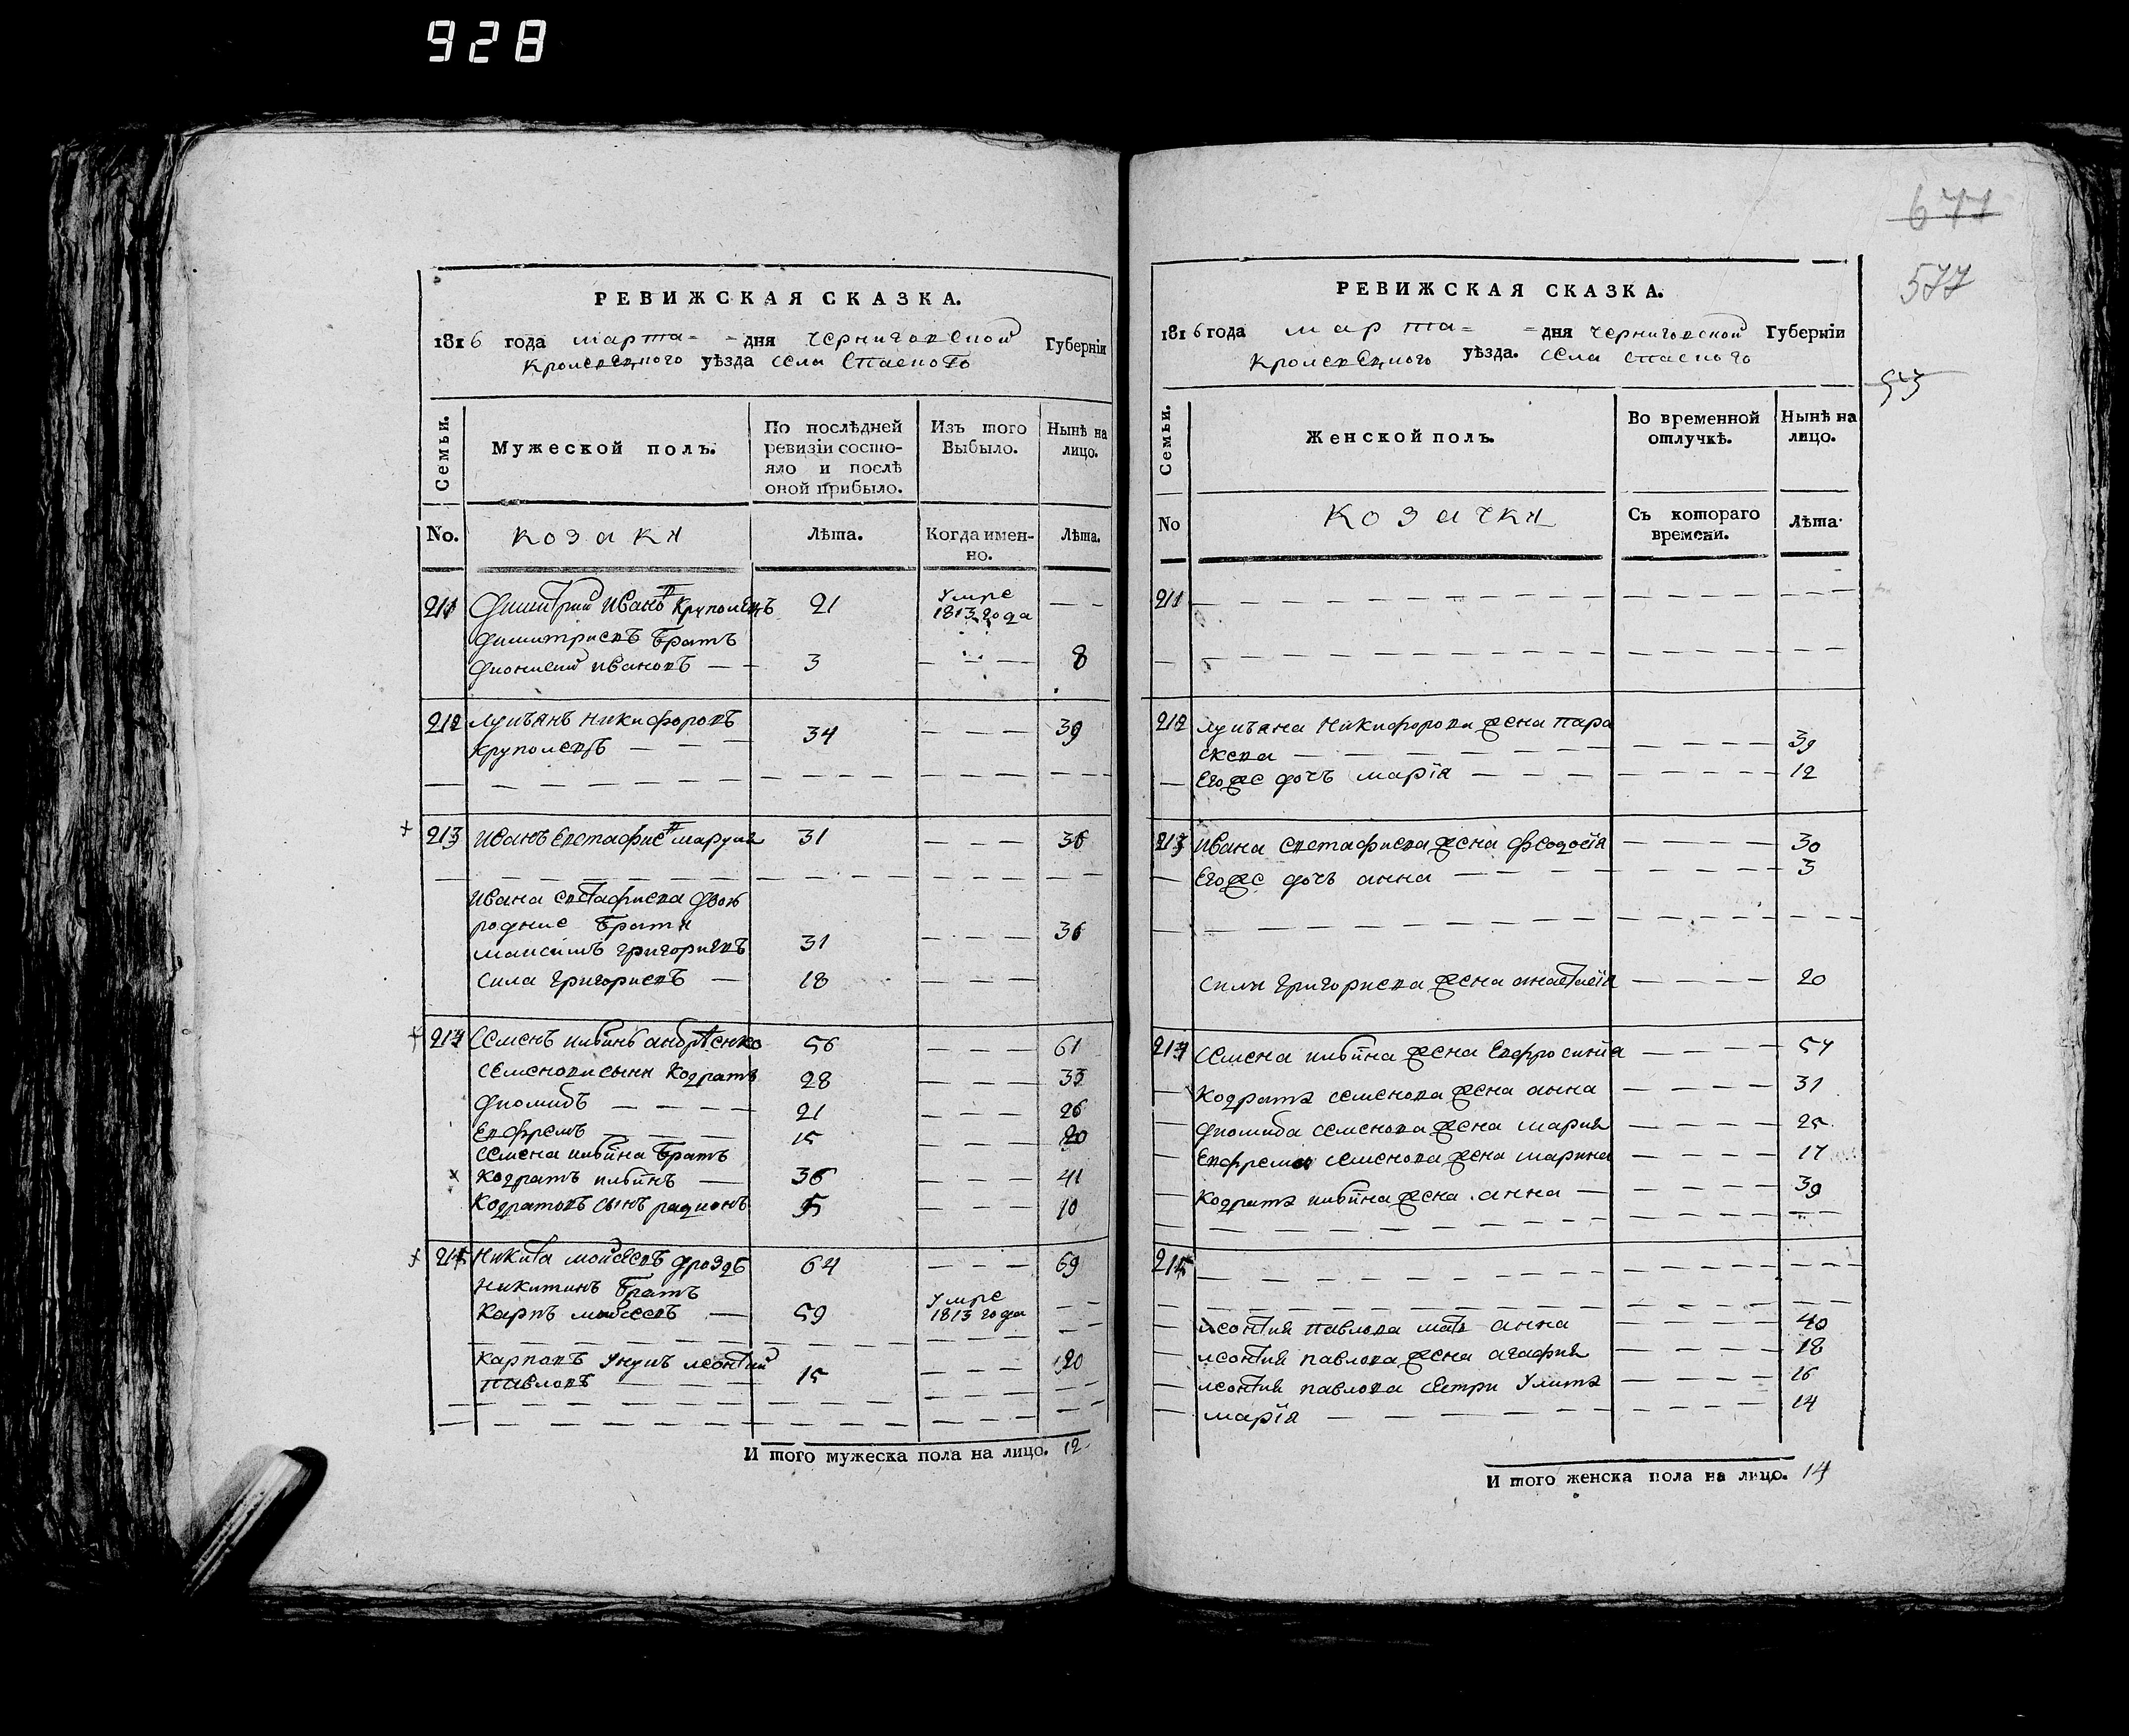 928
РЕВИЖСКАЯ СКАЗКА.
1816 года марта = = дня черниговской Губерніи
кролевецкого уѣзда села Спаского
Семьи.
Мужеской полъ.
По послѣдней
ревизіи состо-
яло и послѣ
оной прибыло.
Изъ того
Выбыло.
Нынѣ на
лицо.
No. козаки Лѣта. Когда имен-
но. Лѣта.
211 Димитрий Иванов Круполецъ 21 Умре
1813 года — —
Димитриевъ братъ
Дионисий Ивановъ — — 3 — — — 8
212 Лукъянъ Никифоровъ
Круполецъ — — — 34 — — — 39
213 Иванъ Евстафиев 31 — — — 36
Ивана Евстафиева двою
родние брати
Максимъ Григориевъ 31 — — — 36
Сила Григориевъ — 18 — — —
214 Семенъ Ильинъ Андрѣенко 56 — — — 61
Семенови сыни Кодратъ 28 — — — 33
Диомидъ — — — — 21 — — — 26
Евфремъ — — — 15 — — — 20
Семена Ильина братъ
Кодратъ Ильинъ — 36 — — — 41
Кодратовъ сынъ Радионъ 5 — — — 10
215 Никита Мойсеевъ Дроздъ 64 — — — 69
Никитинъ братъ
Карпъ Мойсеевъ — 59 Умре
1813 года — —
Карповъ унукъ Леонтий
Павловъ — — — 15 — — — 20
И того мужеска пола на лицо. 12
677
577
РЕВИЖСКАЯ СКАЗКА.
1816 года марта = = дня черниговской Губерніи
кролевецкого уѣзда. села Спаского
Семьи.
Женской полъ.
Во временной
отлучкѣ.
Нынѣ на
лицо.
No козачки Съ котораго
времени. Лѣта.
211 — — — —
212 Лукъяна Никифорова жена Пара
скева — — — — 39
Егоже дочъ Марїя — — — — 12
213 Ивана Евстафиева жена Феодосїя — — — — 30
Егоже дочъ Анна — — — — 3
Сили Григориева жена Анастасїя — — — — 20
214 Семена Ильина жена Евфросиния — — — — 57
Кодрата Семенова жена Анна — — — — 31
Диомида Семенова жена Мария — — — — 25
Евфрема Семенова жена Марина — — — — 17
Кодрата Ильина жена Анна — — — — 39
215 — — — —
Леонтия Павлова мать Анна — — — — 40
Леонтия Павлова жена Агафия — — — — 18
Леонтия Павлова сестри Улита — — — — 16
Марїя — — — — 14
И того женска пола на лицо. 14